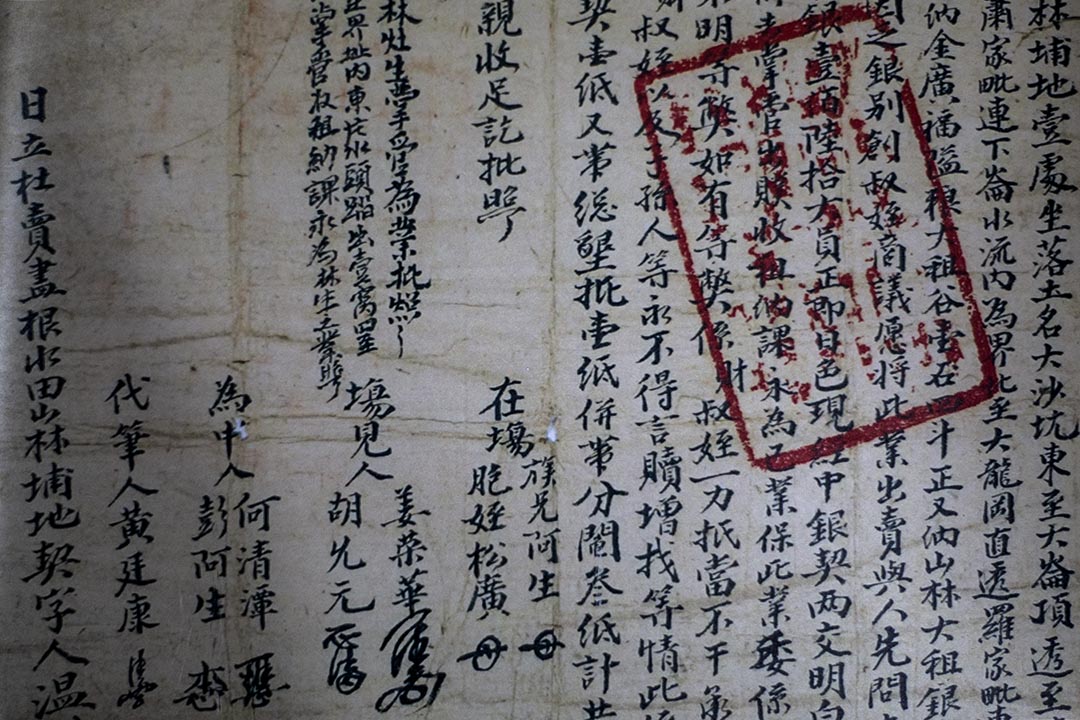 林埔地壹處坐落土名大沙坑東至大崙頂透至
肅家毗連下崙水流內為界北至大龍岡直透羅家毗
納金廣福隘粮大租谷壹石四斗正又納山林大租銀
因之銀别創叔姪商議愿將此業出賣與人先問
銀壹佰陸拾大員正即日色現經中銀契两交明白
前去掌管出贌收租納課永為己業保此業委係
不明等弊如有等弊係財叔姪一力抵當不干承
財叔姪以及子孫人等永不得言贖增找等情此係
契壹紙又帯総墾批壹紙併帯分鬮叁紙計共
親收足訖批照
在塲族兄阿生
胞姪松廣
林灶生掌管為業批照
界址內東片水頭踏出壹窩
掌管收租納課永為林生
塲見人姜荣華
胡允元
為中人何清潭
彭阿生
代筆人黄廷康
日立杜賣盡根水田山林埔地契字人温